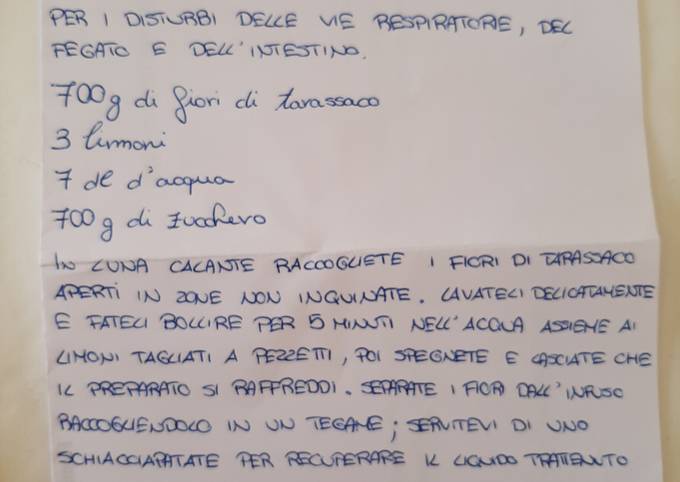 PER I DISTURBI DELLE VIE RESPIRATORIE, DEL
FEGATO E DELL'INTESTINO.
700g di fiori di tarassaco
3 limoni
7 dl d'acqua
700 g di zucchero
IN LUNA CALANTE RACCOGLIETE I FIORI DI TARASSACO
APERTI IN ZONE NON INQUINATE. LAVATELI DELICATAMENTE
E FATELI BOLLIRE PER 5 MINUTI NELL'ACQUA ASSIEME AI
LIMONI TAGLIATI A PEZZETTI, POI SPEGNETE E LASCIATE CHE
IL PREPARATO SI RAFFREDDI. SEPARATE I FIORI DALL'INFUSO
RACCOGLIENDOLO IN UN TEGAME; SERVITEVI DI UNO
SCHIACCIAPATATE PER RECUPERARE IL LIQUIDO TRATTENUTO